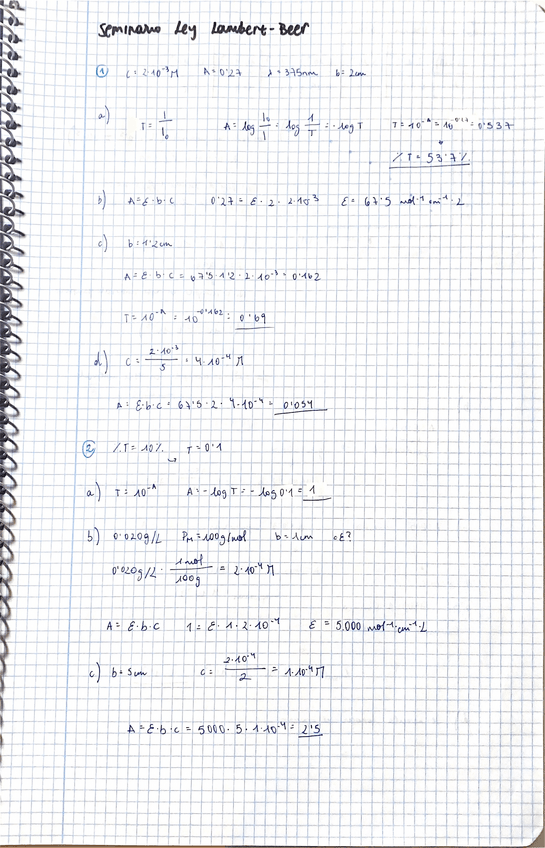 Seminario Ley Lambert-Beer
① C=2·10⁻³M A=0'27 λ=375nm b=2cm
a) T=I/I₀ A=log I₀/I = log 1/T = -log T T=10⁻ᴬ=10⁻⁰'²⁷=0'537
%T = 53'7%
b) A=ε·b·c 0'27=ε·2·2·10⁻³ ε=67'5 mol⁻¹·cm⁻¹·L
c) b=1'2cm
A=ε·b·c=67'5·1'2·2·10⁻³=0'162
T=10⁻ᴬ=10⁻⁰'¹⁶²=0'69
d) C=2·10⁻³/5=4·10⁻⁴M
A=ε·b·c=67'5·2·4·10⁻⁴=0'054
② %T=10% → T=0'1
a) T=10⁻ᴬ A=-log T=-log 0'1=1
b) 0'020g/L PM=100g/mol b=1cm ¿ε?
0'020g/L · 1mol/100g = 2·10⁻⁴M
A=ε·b·c 1=ε·1·2·10⁻⁴ ε=5.000 mol⁻¹·cm⁻¹·L
c) b=5cm C=2·10⁻⁴/2=1·10⁻⁴M
A=ε·b·c=5000·5·1·10⁻⁴=2'5